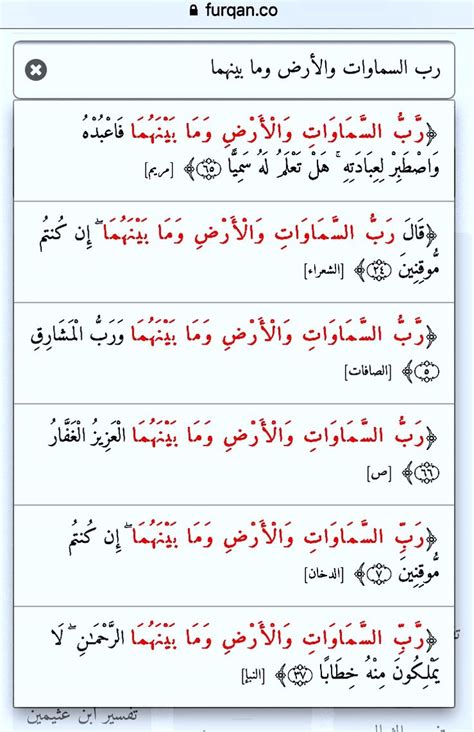 furqan.co
رب السماوات والأرض وما بينهما
﴿رَّبُّ السَّمَاوَاتِ وَالْأَرْضِ وَمَا بَيْنَهُمَا فَاعْبُدْهُ
وَاصْطَبِرْ لِعِبَادَتِهِ ۚ هَلْ تَعْلَمُ لَهُ سَمِيًّا ‎﴿٦٥﴾‏ [مريم]
﴿قَالَ رَبُّ السَّمَاوَاتِ وَالْأَرْضِ وَمَا بَيْنَهُمَا ۖ إِن كُنتُم
مُّوقِنِينَ ‎﴿٢٤﴾‏ [الشعراء]
﴿رَّبُّ السَّمَاوَاتِ وَالْأَرْضِ وَمَا بَيْنَهُمَا وَرَبُّ الْمَشَارِقِ
‎﴿٥﴾‏ [الصافات]
﴿رَبُّ السَّمَاوَاتِ وَالْأَرْضِ وَمَا بَيْنَهُمَا الْعَزِيزُ الْغَفَّارُ
‎﴿٦٦﴾‏ [ص]
﴿رَبِّ السَّمَاوَاتِ وَالْأَرْضِ وَمَا بَيْنَهُمَا ۖ إِن كُنتُم
مُّوقِنِينَ ‎﴿٧﴾‏ [الدخان]
﴿رَّبِّ السَّمَاوَاتِ وَالْأَرْضِ وَمَا بَيْنَهُمَا الرَّحْمَٰنِ ۖ لَا
يَمْلِكُونَ مِنْهُ خِطَابًا ‎﴿٣٧﴾‏ [النبإ]
تفسير ابن عثيمين